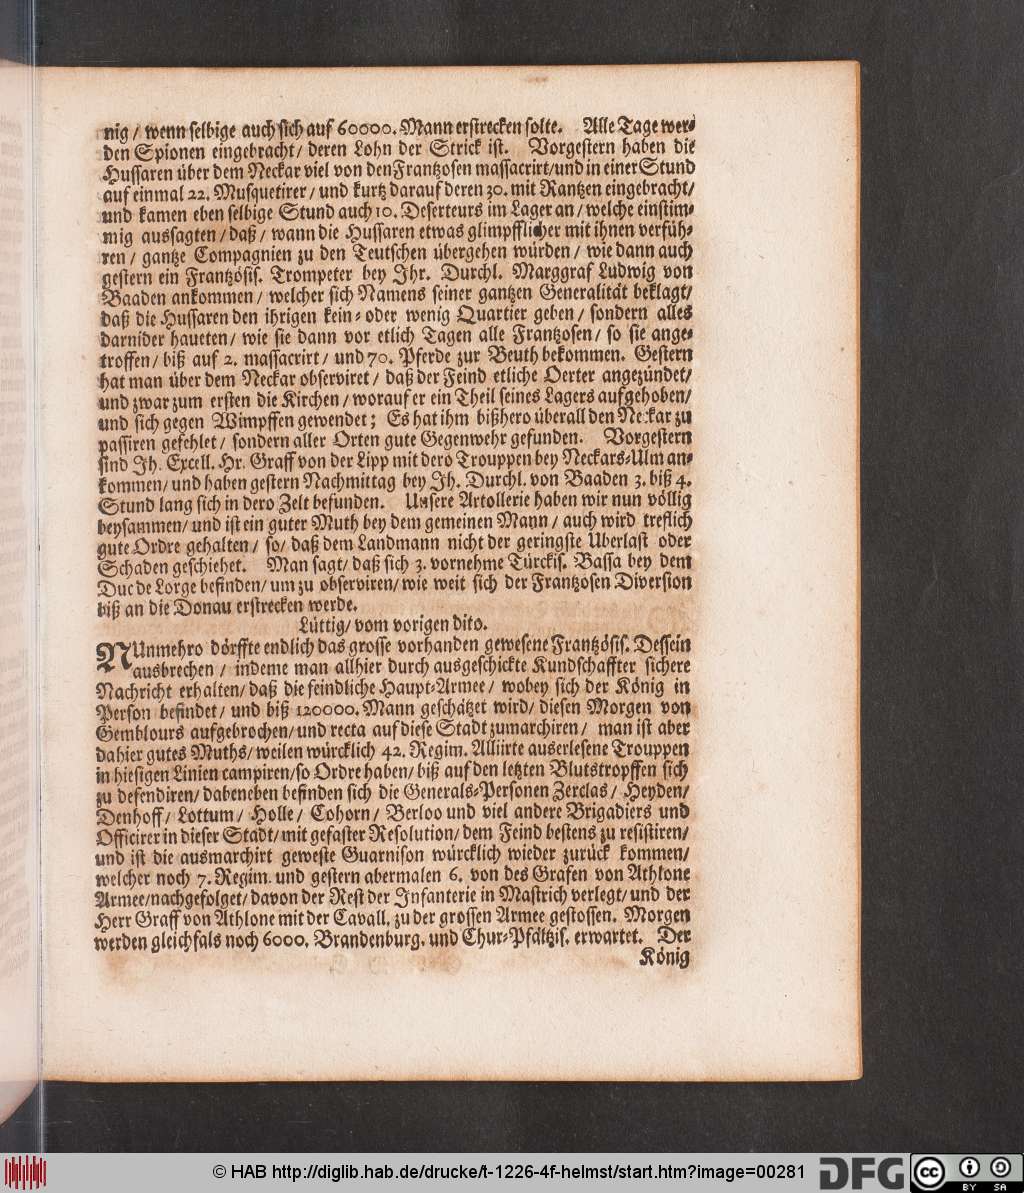 nig / wenn selbige auch sich auf 60000. Mann erstrecken solte. Alle Tage wer-
den Spionen eingebracht / deren Lohn der Strick ist. Vorgestern haben die
Hussaren über dem Neckar viel von den Frantzosen massacrirt/und in einer Stund
auf einmal 22. Musquetirer / und kurtz darauf deren 30. mit Rantzen eingebracht/
und kamen eben selbige Stund auch 10. Deserteurs im Lager an / welche einstim-
mig aussagten / daß / wann die Hussaren etwas glimpfflicher mit ihnen verfüh-
ren / gantze Compagnien zu den Teutschen übergehen würden / wie dann auch
gestern ein Frantzösis. Trompeter bey Ihr. Durchl. Marggraf Ludwig von
Baaden ankommen / welcher sich Namens seiner gantzen Generalität beklagt/
daß die Hussaren den ihrigen kein- oder wenig Quartier geben / sondern alles
darnider haueten / wie sie dann vor etlich Tagen alle Frantzosen / so sie ange-
troffen / biß auf 2. massacrirt / und 70. Pferde zur Beuth bekommen. Gestern
hat man über dem Neckar observiret / daß der Feind etliche Oerter angezündet/
und zwar zum ersten die Kirchen / worauf er ein Theil seines Lagers aufgehoben/
und sich gegen Wimpffen gewendet ; Es hat ihm bißhero überall den Neckar zu
passiren gefehlet / sondern aller Orten gute Gegenwehr gefunden. Vorgestern
sind Ih. Excell. Hr. Graff von der Lipp mit dero Trouppen bey Neckars-Ulm an-
kommen/ und haben gestern Nachmittag bey Ih. Durchl. von Baaden 3. biß 4.
Stund lang sich in dero Zelt befunden. Unsere Artollerie haben wir nun völlig
beysammen/ und ist ein guter Muth bey dem gemeinen Mann / auch wird treflich
gute Ordre gehalten / so/ daß dem Landmann nicht der geringste Uberlast oder
Schaden geschiehet. Man sagt/ daß sich 3. vornehme Türckis. Bassa bey dem
Duc de Lorge befinden/ um zu observiren/ wie weit sich der Frantzosen Diversion
biß an die Donau erstrecken werde.
Lüttig/ vom vorigen dito.
NUnmehro dörffte endlich das grosse vorhanden gewesene Frantzösis. Dessein
ausbrechen / indeme man allhier durch ausgeschickte Kundschaffter sichere
Nachricht erhalten/ daß die feindliche Haupt-Armee / wobey sich der König in
Person befindet/ und biß 120000. Mann geschätzet wird/ diesen Morgen von
Gemblours aufgebrochen/ und recta auf diese Stadt zumarchiren / man ist aber
dahier gutes Muths/ weilen würcklich 42. Regim. Alliirte auserlesene Trouppen
in hiesigen Linien campiren/so Ordre haben/ biß auf den letzten Blutstropffen sich
zu defendiren/ dabeneben befinden sich die Generals-Personen Zerclas / Heyden/
Denhoff/ Lottum/ Holle/ Cohorn/ Berloo und viel andere Brigadiers und
Officirer in dieser Stadt/ mit gefaster Resolution/ dem Feind bestens zu resistiren/
und ist die ausmarchirt geweste Guarnison würcklich wieder zurück kommen/
welcher noch 7. Regim. und gestern abermalen 6. von des Grafen von Athlone
Armee/nachgefolget/ davon der Rest der Infanterie in Mastrich verlegt/ und der
Herr Graff von Athlone mit der Cavall. zu der grossen Armee gestossen. Morgen
werden gleichfals noch 6000. Brandenburg. und Chur-Pfältzis. erwartet. Der
König
© HAB http://diglib.hab.de/drucke/t-1226-4f-helmst/start.htm?image=00281
DFG
cc BY SA